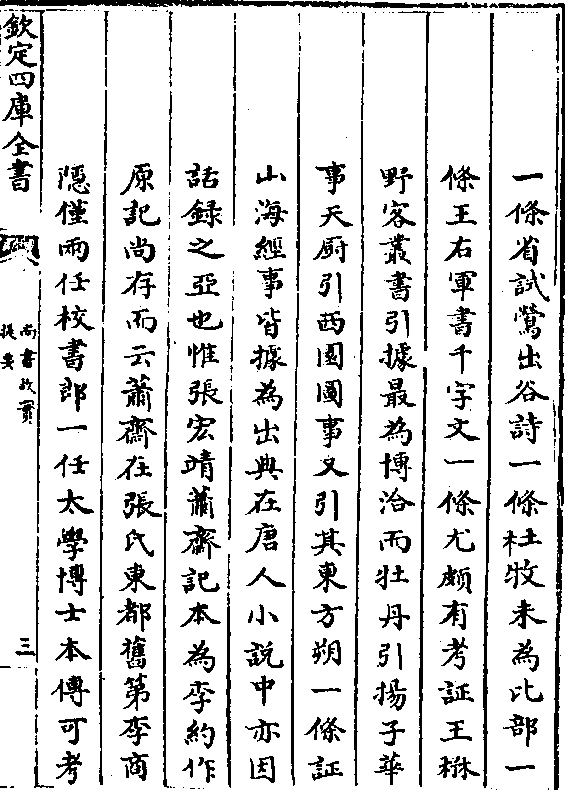 一條省試鶯出谷詩一條杜牧未為比部一
條王右軍書千字文一條尤頗有考証王楙
野客叢書引據最為博洽而牡丹引揚子華
事天厨引西園圖事又引其東方朔一條証
山海經事皆據為出典在唐人小説中亦因
話録之亞也惟張宏靖蕭齋記本為李約作
原記尚存而云蕭齋在張氏東都舊第李商
隱僅兩任校書郎一任太學博士本傳可考
欽定四庫全書
尚書故實
提要
三